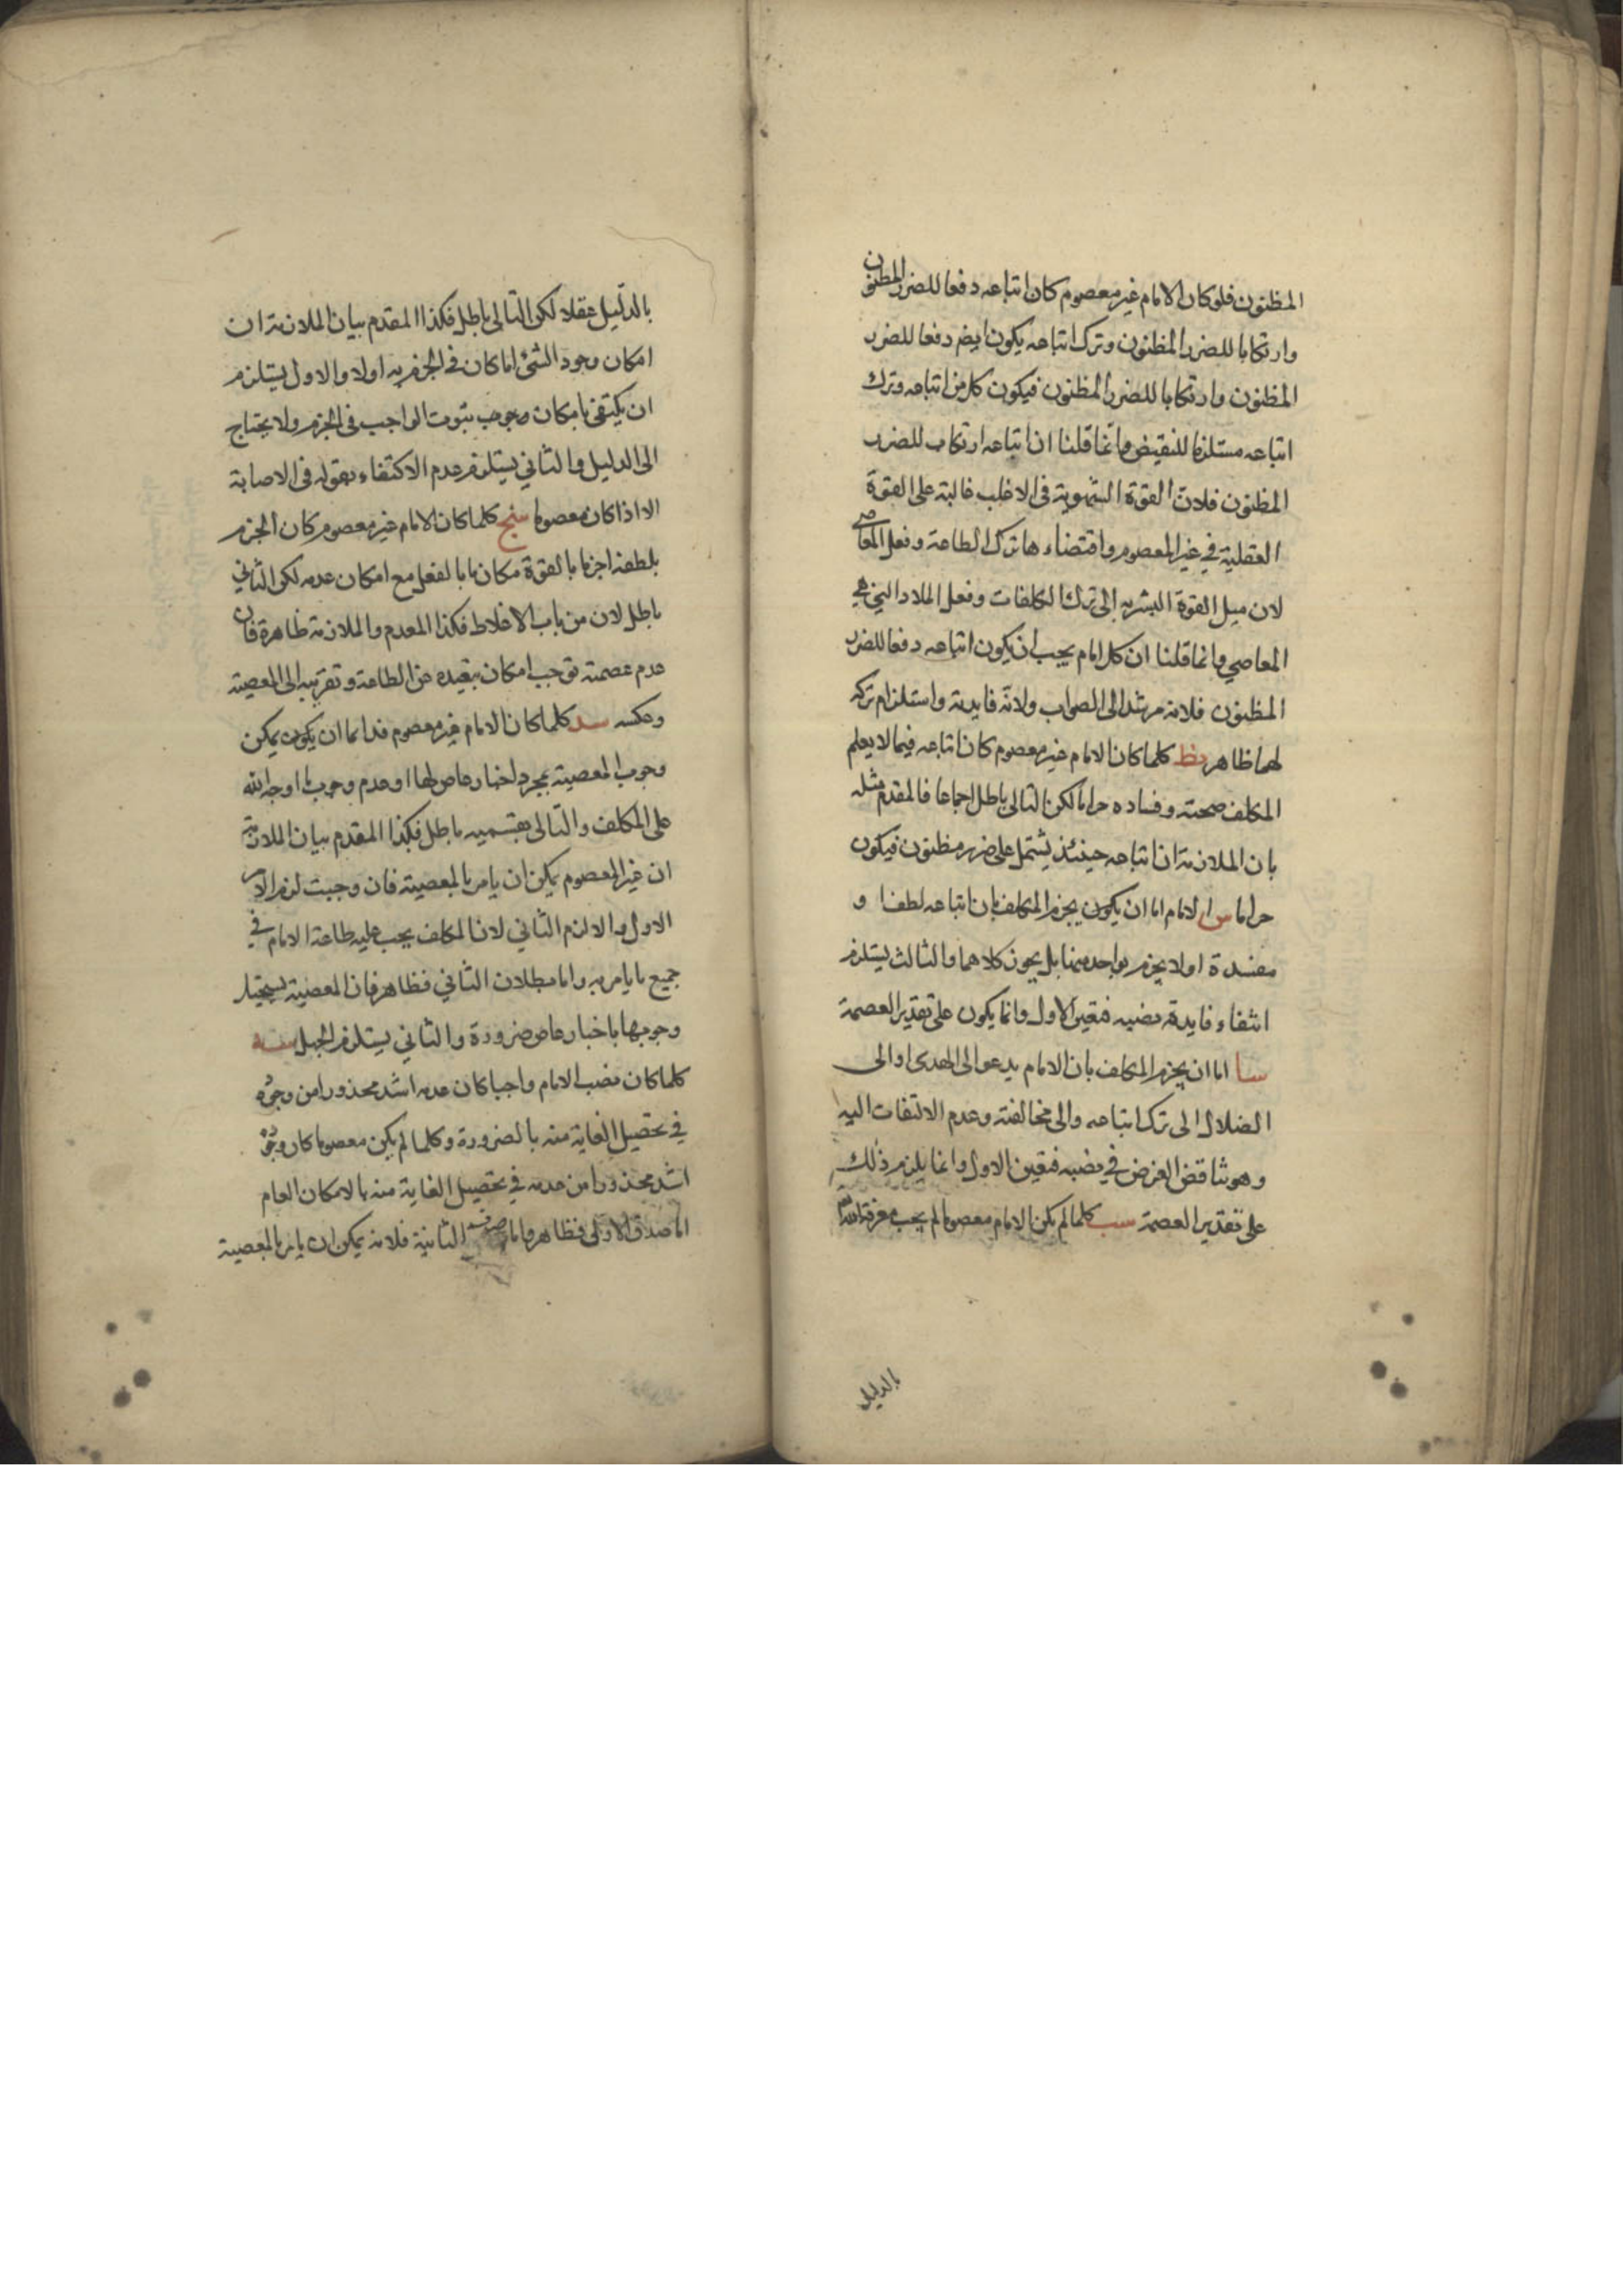 المظنون فلو كان الامام غير معصوم كان اتباعه دفعا للضرر المظنون
وارتكابا للضرر المظنون وترك اتباعه يكون ايضا دفعا للضرر
المظنون وارتكابا للضرر المظنون فيكون كل من اتباعه وترك
اتباعه مستلزما للنقيض وانما قلنا ان اتباعه ارتكاب للضرر
المظنون فلان القوة الشهوية فى الاغلب غالبة على القوة
العقلية في غير المعصوم واقتضاءها ترك الطاعة وفعل المعاصي
لان ميل القوة البشرية الى ترك التكلفات وفعل الملاد التي هي
المعاصي وانما قلنا ان كل امام يجب ان يكون اتباعه دفعا للضرر
المظنون فلانه مرشد الى الصواب ولانه فايدته واستلزام تركه
لهما ظاهر نط كلما كان الامام غير معصوم كان اتباعه فيما لا يعلم
المكلف صحته وفساده حراما لكن التالى باطل اجماعا فالمقدم مثله
بان الملازمة ان اتباعه حينئذ يشتمل على ضرر مظنون فيكون
حراما س الامام اما ان يكون يجزم المكلف بان اتباعه لطفا و
مفسدة اولا يجزم بواحد منهما بل يجوز كلاهما والثالث يستلزم
انتفاء فايدة نصبه فتعين الاول وانما يكون على تقدير العصمة
سا اما ان يجزم المكلف بان الامام يدعو الى الهدى او الى
الضلال الى ترك اتباعه والى مخالفته وعدم الالتفات اليه
وهو تناقض الغرض في نصبه فتعين الاول وانما يلزم ذلك
على تقدير العصمة سب كلما لم يكن الامام معصوما لم يجب معرفة الله
بالدليل
بالدليل عقلا لكن التالى باطل فكذا المقدم بيان الملازمة ان
امكان وجود الشئ اما كان فى الجزم به اولا والاول يستلزم
ان يكتفى بامكان وجوب ثبوت الواجب فى الجزم ولا يحتاج
الى الدليل والثاني يستلزم عدم الاكتفاء بقوله فى الاصابة
الا اذا كان معصوما سج كلما كان الامام غير معصوم كان الجزم
بلطفه اجزما بالقوة مكان ما بالفعل مع امكان عدمه لكن الثاني
باطل لان من باب الاغلاط فكذا المقدم والملازمة ظاهرة فان
عدم عصمته توجب امكان تبعيده عن الطاعة وتقريبه الى المعصية
وعكسه سد كلما كان الامام غير معصوم فدائما ان يكون يمكن
وجوب المعصية بمجرد اخبار عاص لها او عدم وجوب ما اوجبه الله
على المكلف والتالى بقسميه باطل فكذا المقدم بيان الملازمة
ان غير المعصوم يمكن ان يامر بالمعصية فان وجبت لزم الامر
الاول والا لزم الثاني لان المكلف يجب عليه طاعة الامام في
جميع ما يامر به واما بطلان الثاني فظاهر فان المعصية يستحيل
وجوبها باخبار عاص ضرورة والثاني يستلزم الجهل سه
كلما كان نصب الامام واجبا كان عدمه اشد محذورا من وجوده
في تحصيل الغاية منه بالضرورة وكلما لم يكن معصوما كان وجوده
اشد محذورا من عدمه في تحصيل الغاية منه بالامكان العام
اما صدق الاولى فظاهر واما صدق الثانية فلانه يمكن ان يامر بالمعصية